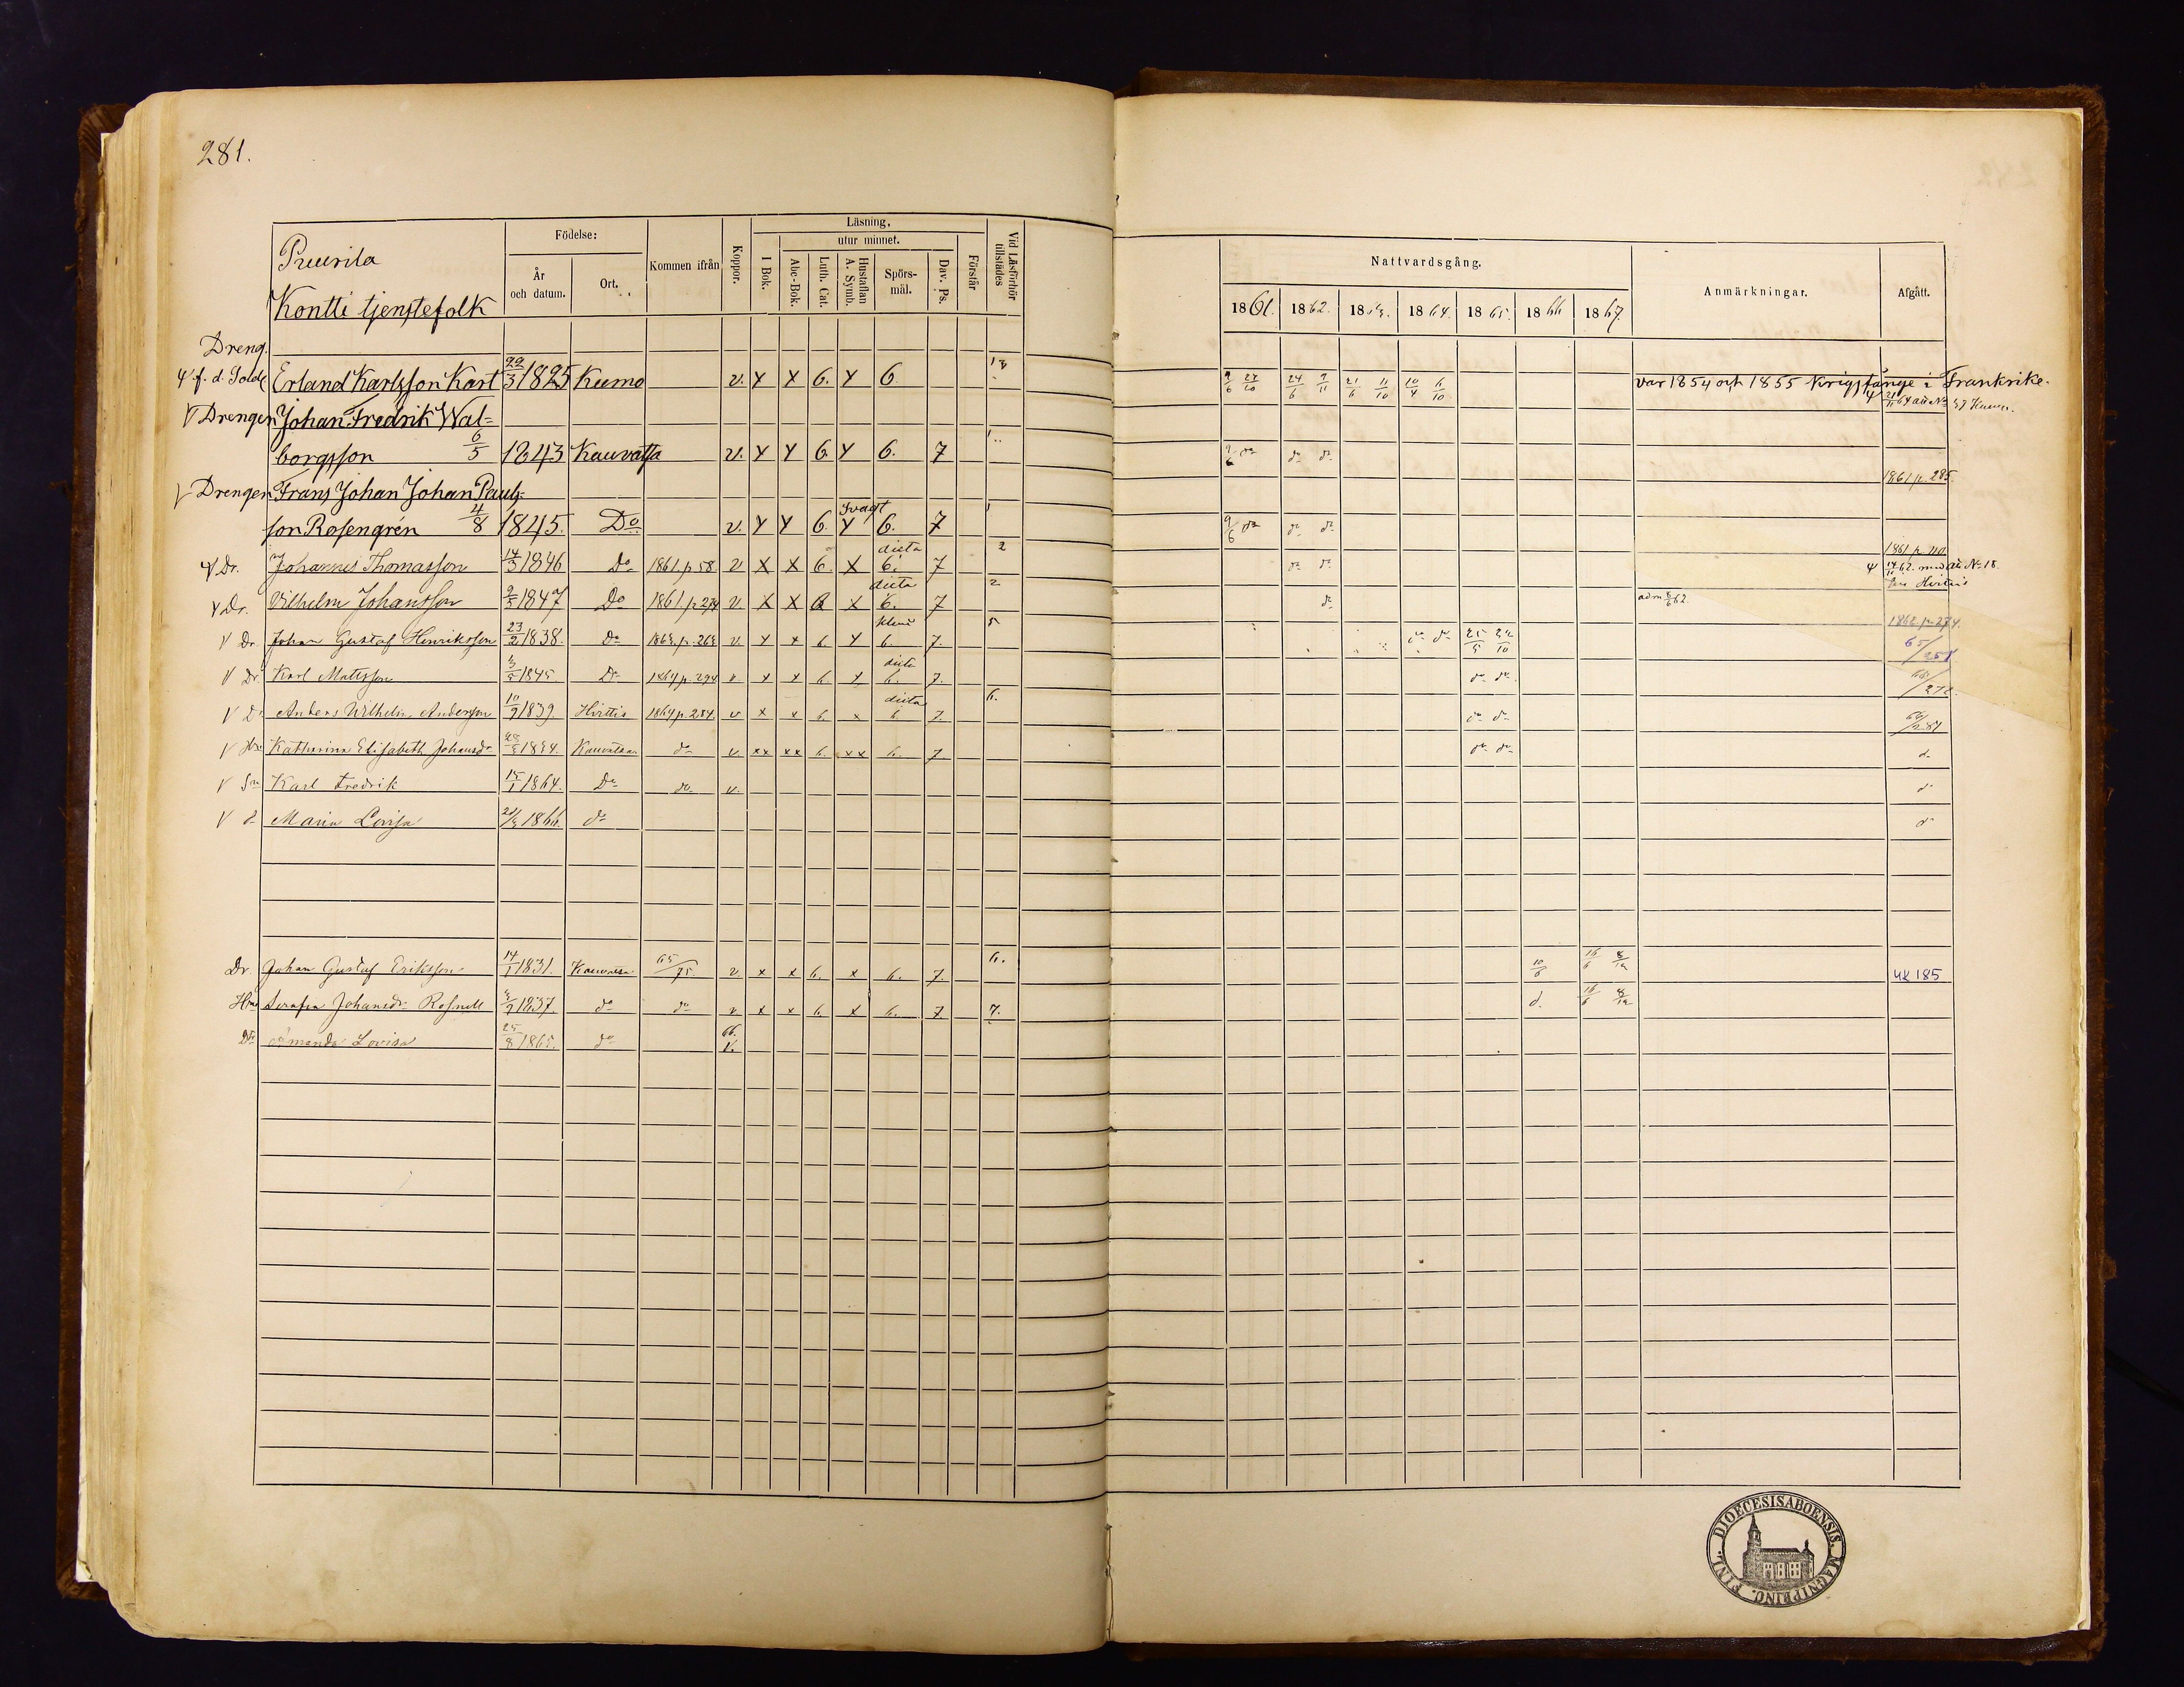 281.
Puurila
Kontti tjenstefolk
Födelse:
År och datum.
Ort.
Kommen ifrån
Koppor.
Läsning,
utur minnet.
I Bok.
Abc-Bok.
Luth. Cat.
Hustaflan A. Symb.
Spörs-mål.
Dav. Ps.
Förstår
Vid Läsförhör tillstädes
Nattvardsgång.
1861. 1862. 1863. 1864. 1865. 1866 1867.
Anmärkningar.
Afgått.
Dreng.
f. d. Sold. Erland Karlsson Kart 22/3 1825 Kumo v. x x 6. x 6. 9/6 27/10 24/6 9/11 21/6 11/10 10/4 6/10 var 1854 och 1855 Krigsfånge i Frankrike.
Drengen Johan Fredrik Wal=
borgsson 6/5 1843 Kauvatsa v. x x 6. x 6. 7 9/6 do do do 1861 p. 285.
Drengen Frans Johan Johan Pauls-
son Rosengrén 4/8 1845. Do v. x x 6. svagt x 6. 7 9/6 do do do 1861 p. 110
Dr. Johannes Thomasson 14/3 1846 Do 1861. p. 58. v x x 6. x dieta 6. 7 2 do do 14/11 62. med att. No 18.
Dr. Vilhelm Johansson 1847 Do 1861. p. 274 v. x x 6 x dieta 6. 7 2 do adm 8/6 62. 1862 p. 274.
Dr Johan Gustaf Henriksson 23/2 1838. Do 1863. p. 263 v. x x 6. x 6. 7. 5 do do 25/5 10 65/251
Dr Karl Mattsson 1845 Do 1864 p. 294 v x x 6. x dieta 6. 7. do do
D Anders Wilhelm Andersson 10/9 1839. Hvittis 1864 p. 284. v x x 6. x dieta 6 7. 6. do do 66/284
Hu Katharina Elisabeth Johansdr 1834. Kauvatsa do v xx xx 6. xx 6. 7. do do d
Sn Karl Fredrik 15/1 1864. Do do v. d
d Maria Lovisa 1866. do d
Dr. Johan Gustaf Eriksson 14/1 1831. Kauvatsa 65/75. v. x x 6. x 6. 7. 6. 10/6 16/6 8/12 uk 185
Hu Serafia Johansdr Rosnell 1837. do do v x x 6. x 6. 7 7. d. 16/6 8/12
Dr Amanda Lovisa 25/8 1865. do 66. v.
FINL. DIOECESIS ABOENSIS. MAGNI PRINC.